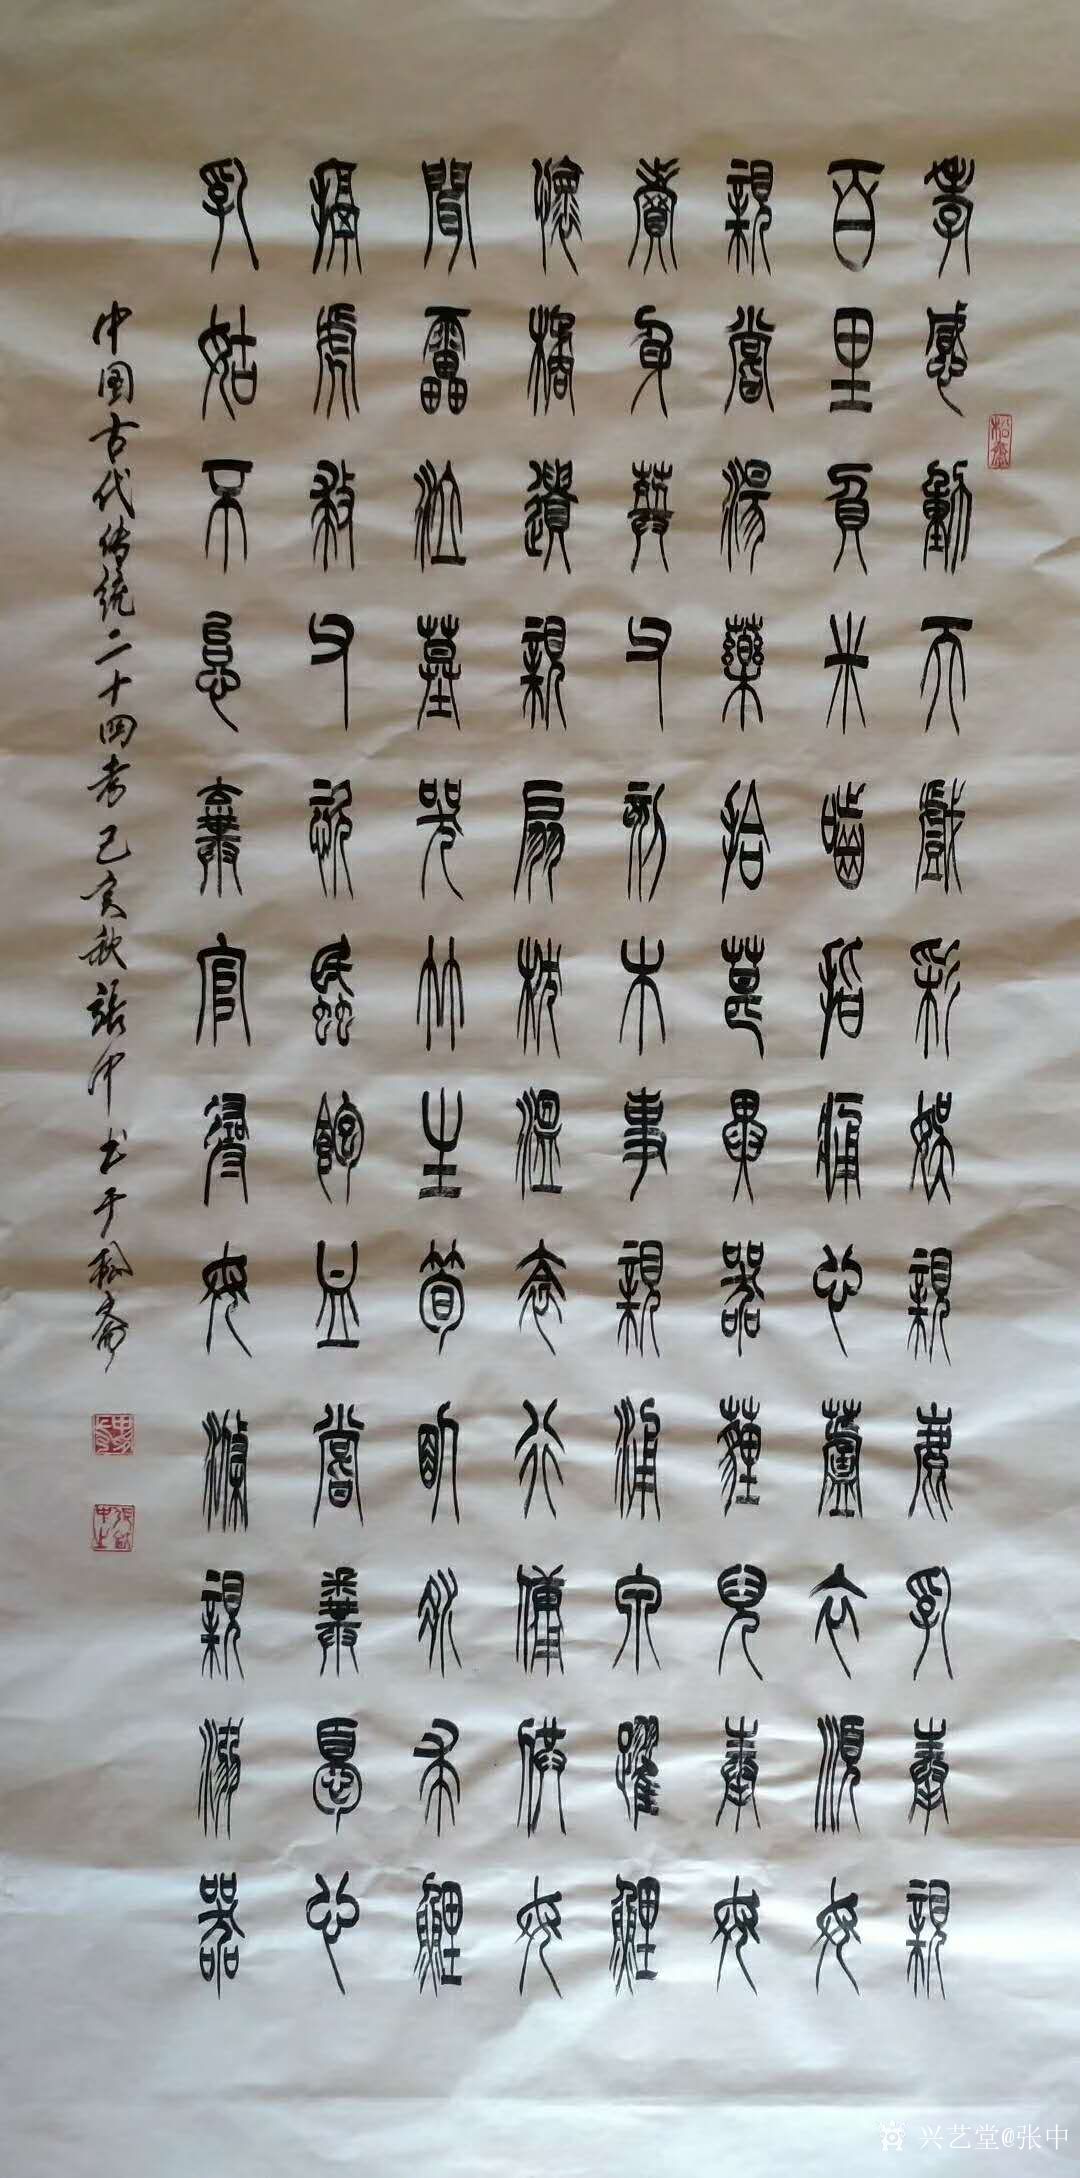 孝感動天戲彩娛親鹿乳奉親
百里負米嚙指痛心蘆衣順母
親嘗湯藥拾葚異器薶兒奉母
賣身葬父刻木事親涌泉躍鯉
懷橘遺親扇枕溫衾行傭供母
聞雷泣墓哭竹生筍臥冰求鯉
搤虎救父恣蚊飽血嘗糞憂心
乳姑不怠棄官尋母滌親溺器
中国古代传统二十四孝己亥秋张中书于松斋
松齋
兴艺堂@张中